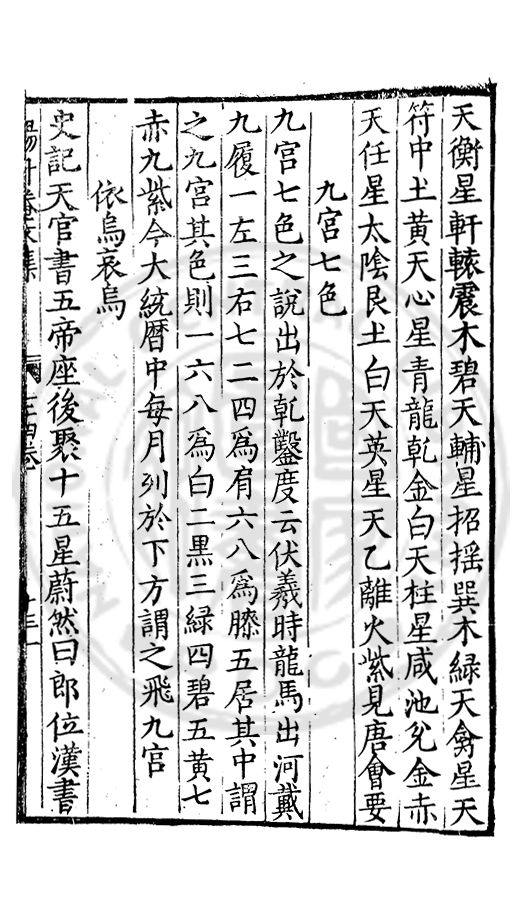 天衡星軒轅震木碧天輔星招摇巽木綠天禽星天
符中土黄天心星青龍乾金白天柱星咸池兊金赤
天任星太陰艮土白天英星天乙離火紫見唐會要
九宮七色
九宮七色之說出於乹鑿度云伏羲時龍馬出河戴
九履一左三右七二四爲肩六八爲膝五居其中謂
之九宮其色則一六八爲白二黒三緑四碧五黄七
赤九紫今大統曆中每月列於下方謂之飛九宮
依烏哀烏
史記天官書五帝座後聚十五星蔚然曰郎位漢書